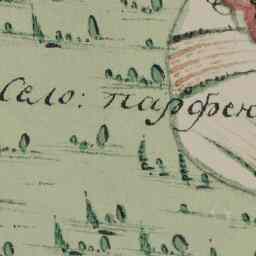 Село: парфен